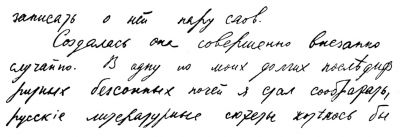 записать о ней пару слов.
Создалась она совершенно внезапно
случайно. В одну из моих долгих
безсонных ночей я стал соображать,
русскіе литературные сюжеты хотѣлось бы